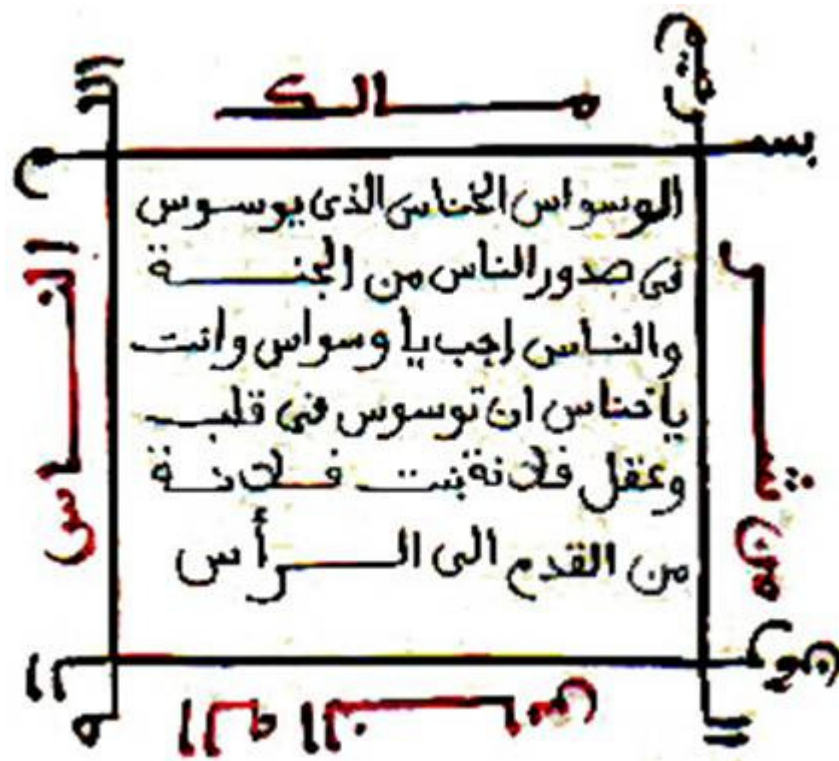 بسم
مالك
الوسواس الخناس الذى يوسوس
فى صدور الناس من الجنة
والناس اجب يا وسواس وانت
يا خناس ان توسوس فى قلب
وعقل فلانة بنت فلانة
من القدم الى الرأس
الناس
اله الناس